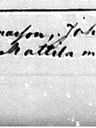 mason, Joh
Mattila m